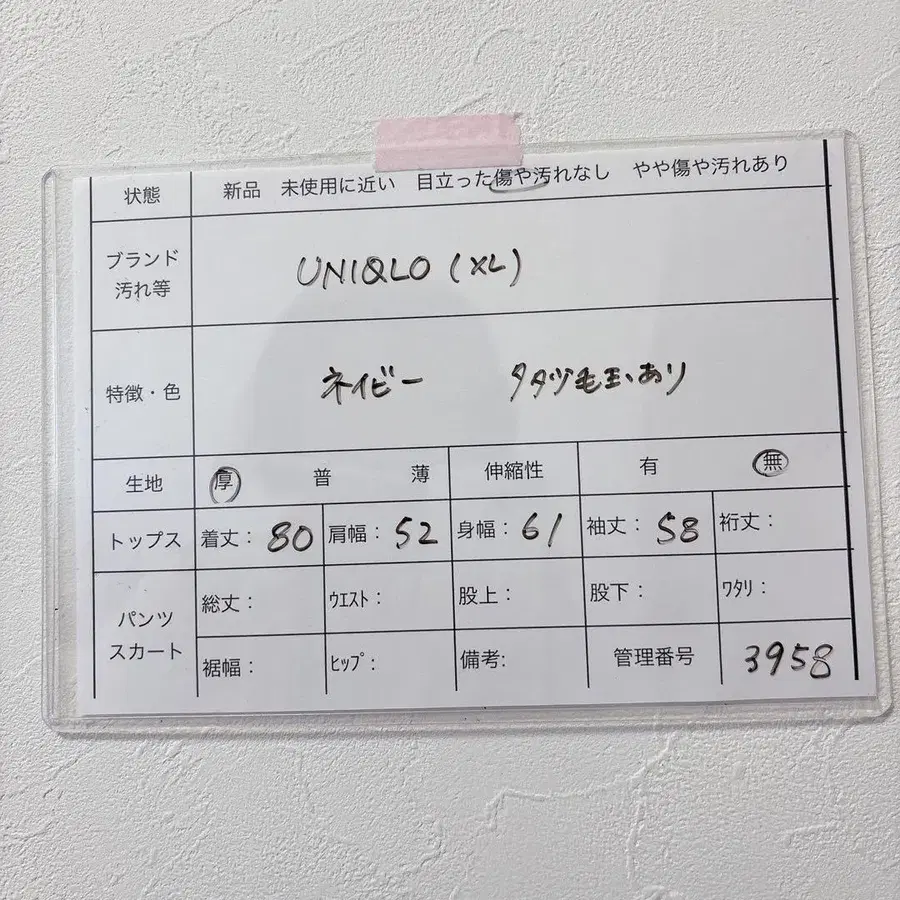 状態 新品 未使用に近い 目立った傷や汚れなし やや傷や汚れあり
ブランド
汚れ等
UNIQLO (XL)
特徴・色 ネイビー タタツ毛玉あり
生地 厚 普 薄 伸縮性 有 無
トップス 着丈: 80 肩幅: 52 身幅: 61 袖丈: 58 裄丈:
パンツ
スカート
総丈: ウエスト: 股上: 股下: ワタリ:
裾幅: ヒップ: 備考: 管理番号 3958